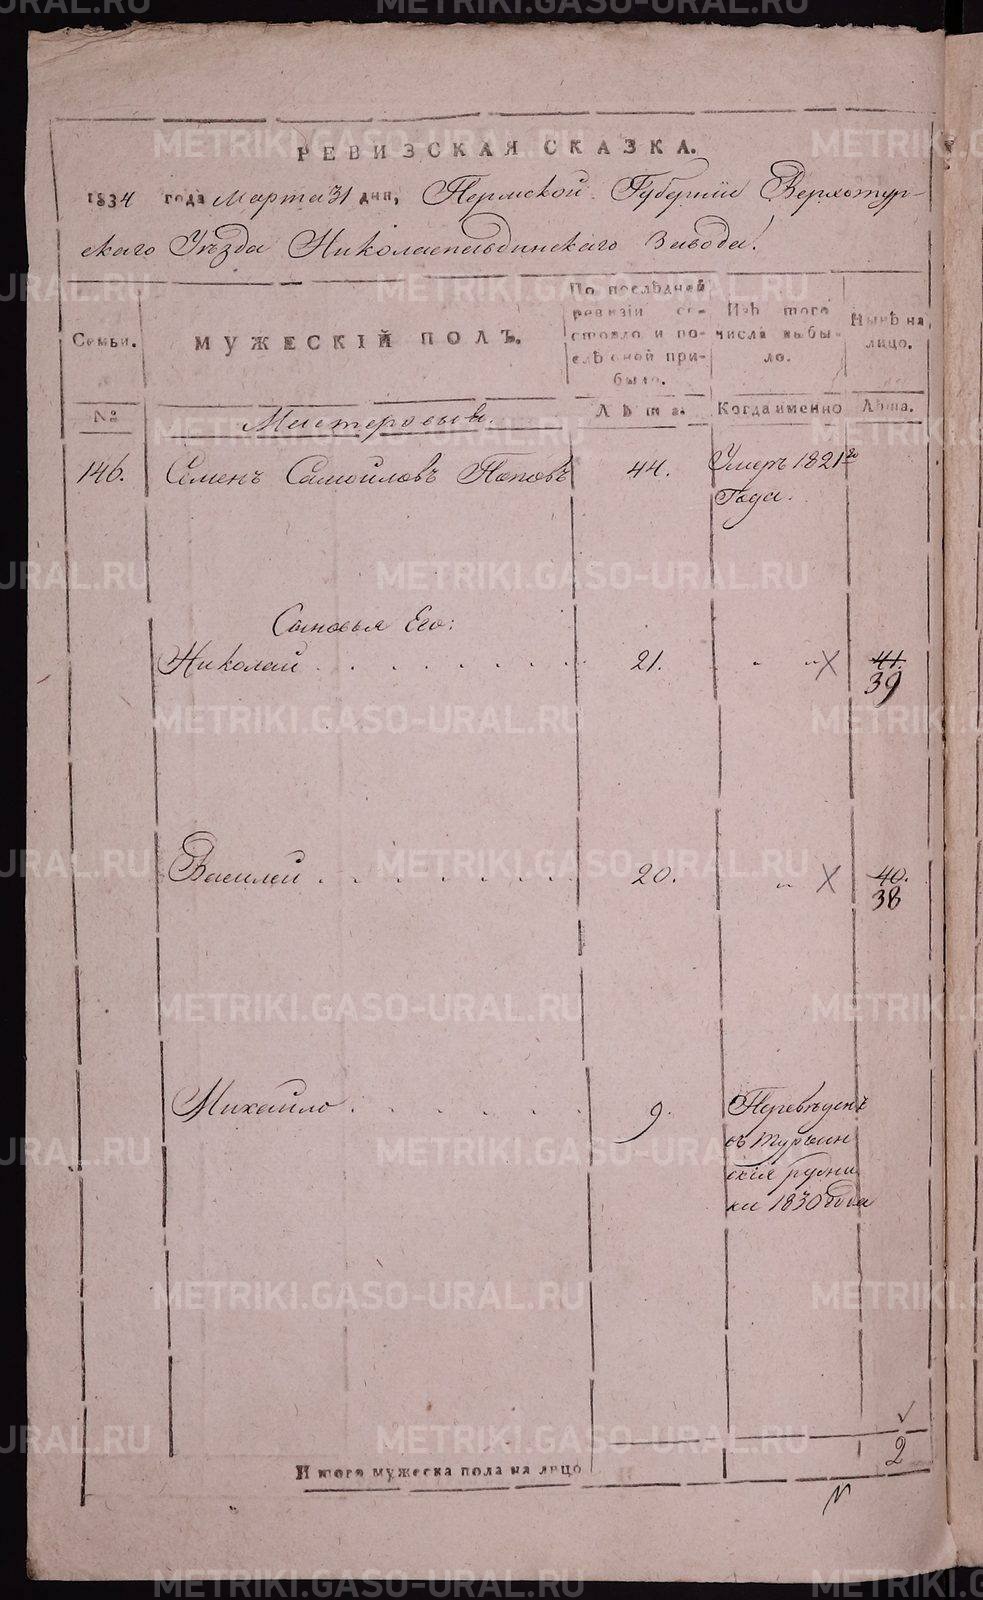 РЕВИЗСКАЯ СКАЗКА.
1834 года Марта 31 дня, Пермской Губернiи Верхотур-
скаго Уѣзда Николаепавдинскаго Завода.
Семьи.
МУЖЕСКIЙ ПОЛЪ.
По послѣдней
ревизiи со-
стояло и по-
слѣ оной при-
было.
Изъ того
числа выбы-
ло.
Нынѣ на
лицо.
№
Мастеровыя.
Лѣта.
Когда именно
Лѣта.
146. Семенъ Самойловъ Поповъ 44. Умеръ 1821го
Года.
Сыновья Его:
Николай 21. X 41.
39
Василей 20. X 40.
38
Михайло 9. Переведенъ
въ Турьин
скiя рудни
ки 1830 года
Итого мужеска пола на лицо 2
METRIKI.GASO-URAL.RU